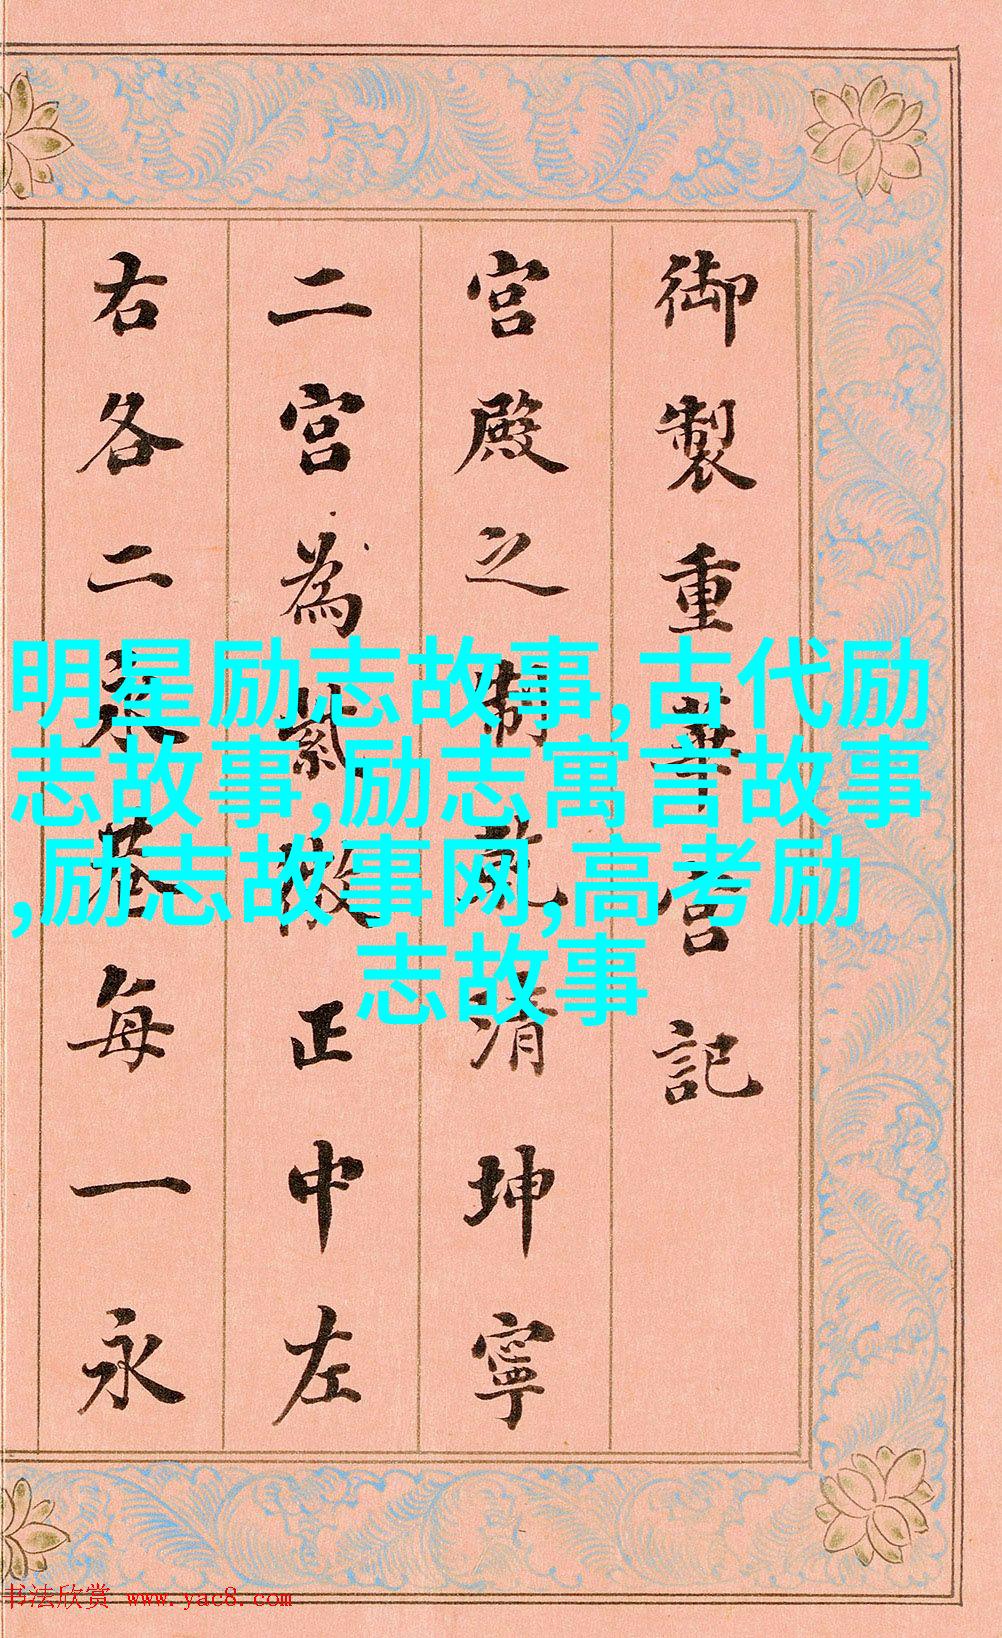 御製重華宮記
宮殿之制乾清坤寧
二宮為紫微正中左
右各二永巷每一永
明星励志故事,古代励
志故事,励志寓言故事
,励志故事网,高考励
志故事
书法欣赏 www.yac8.com